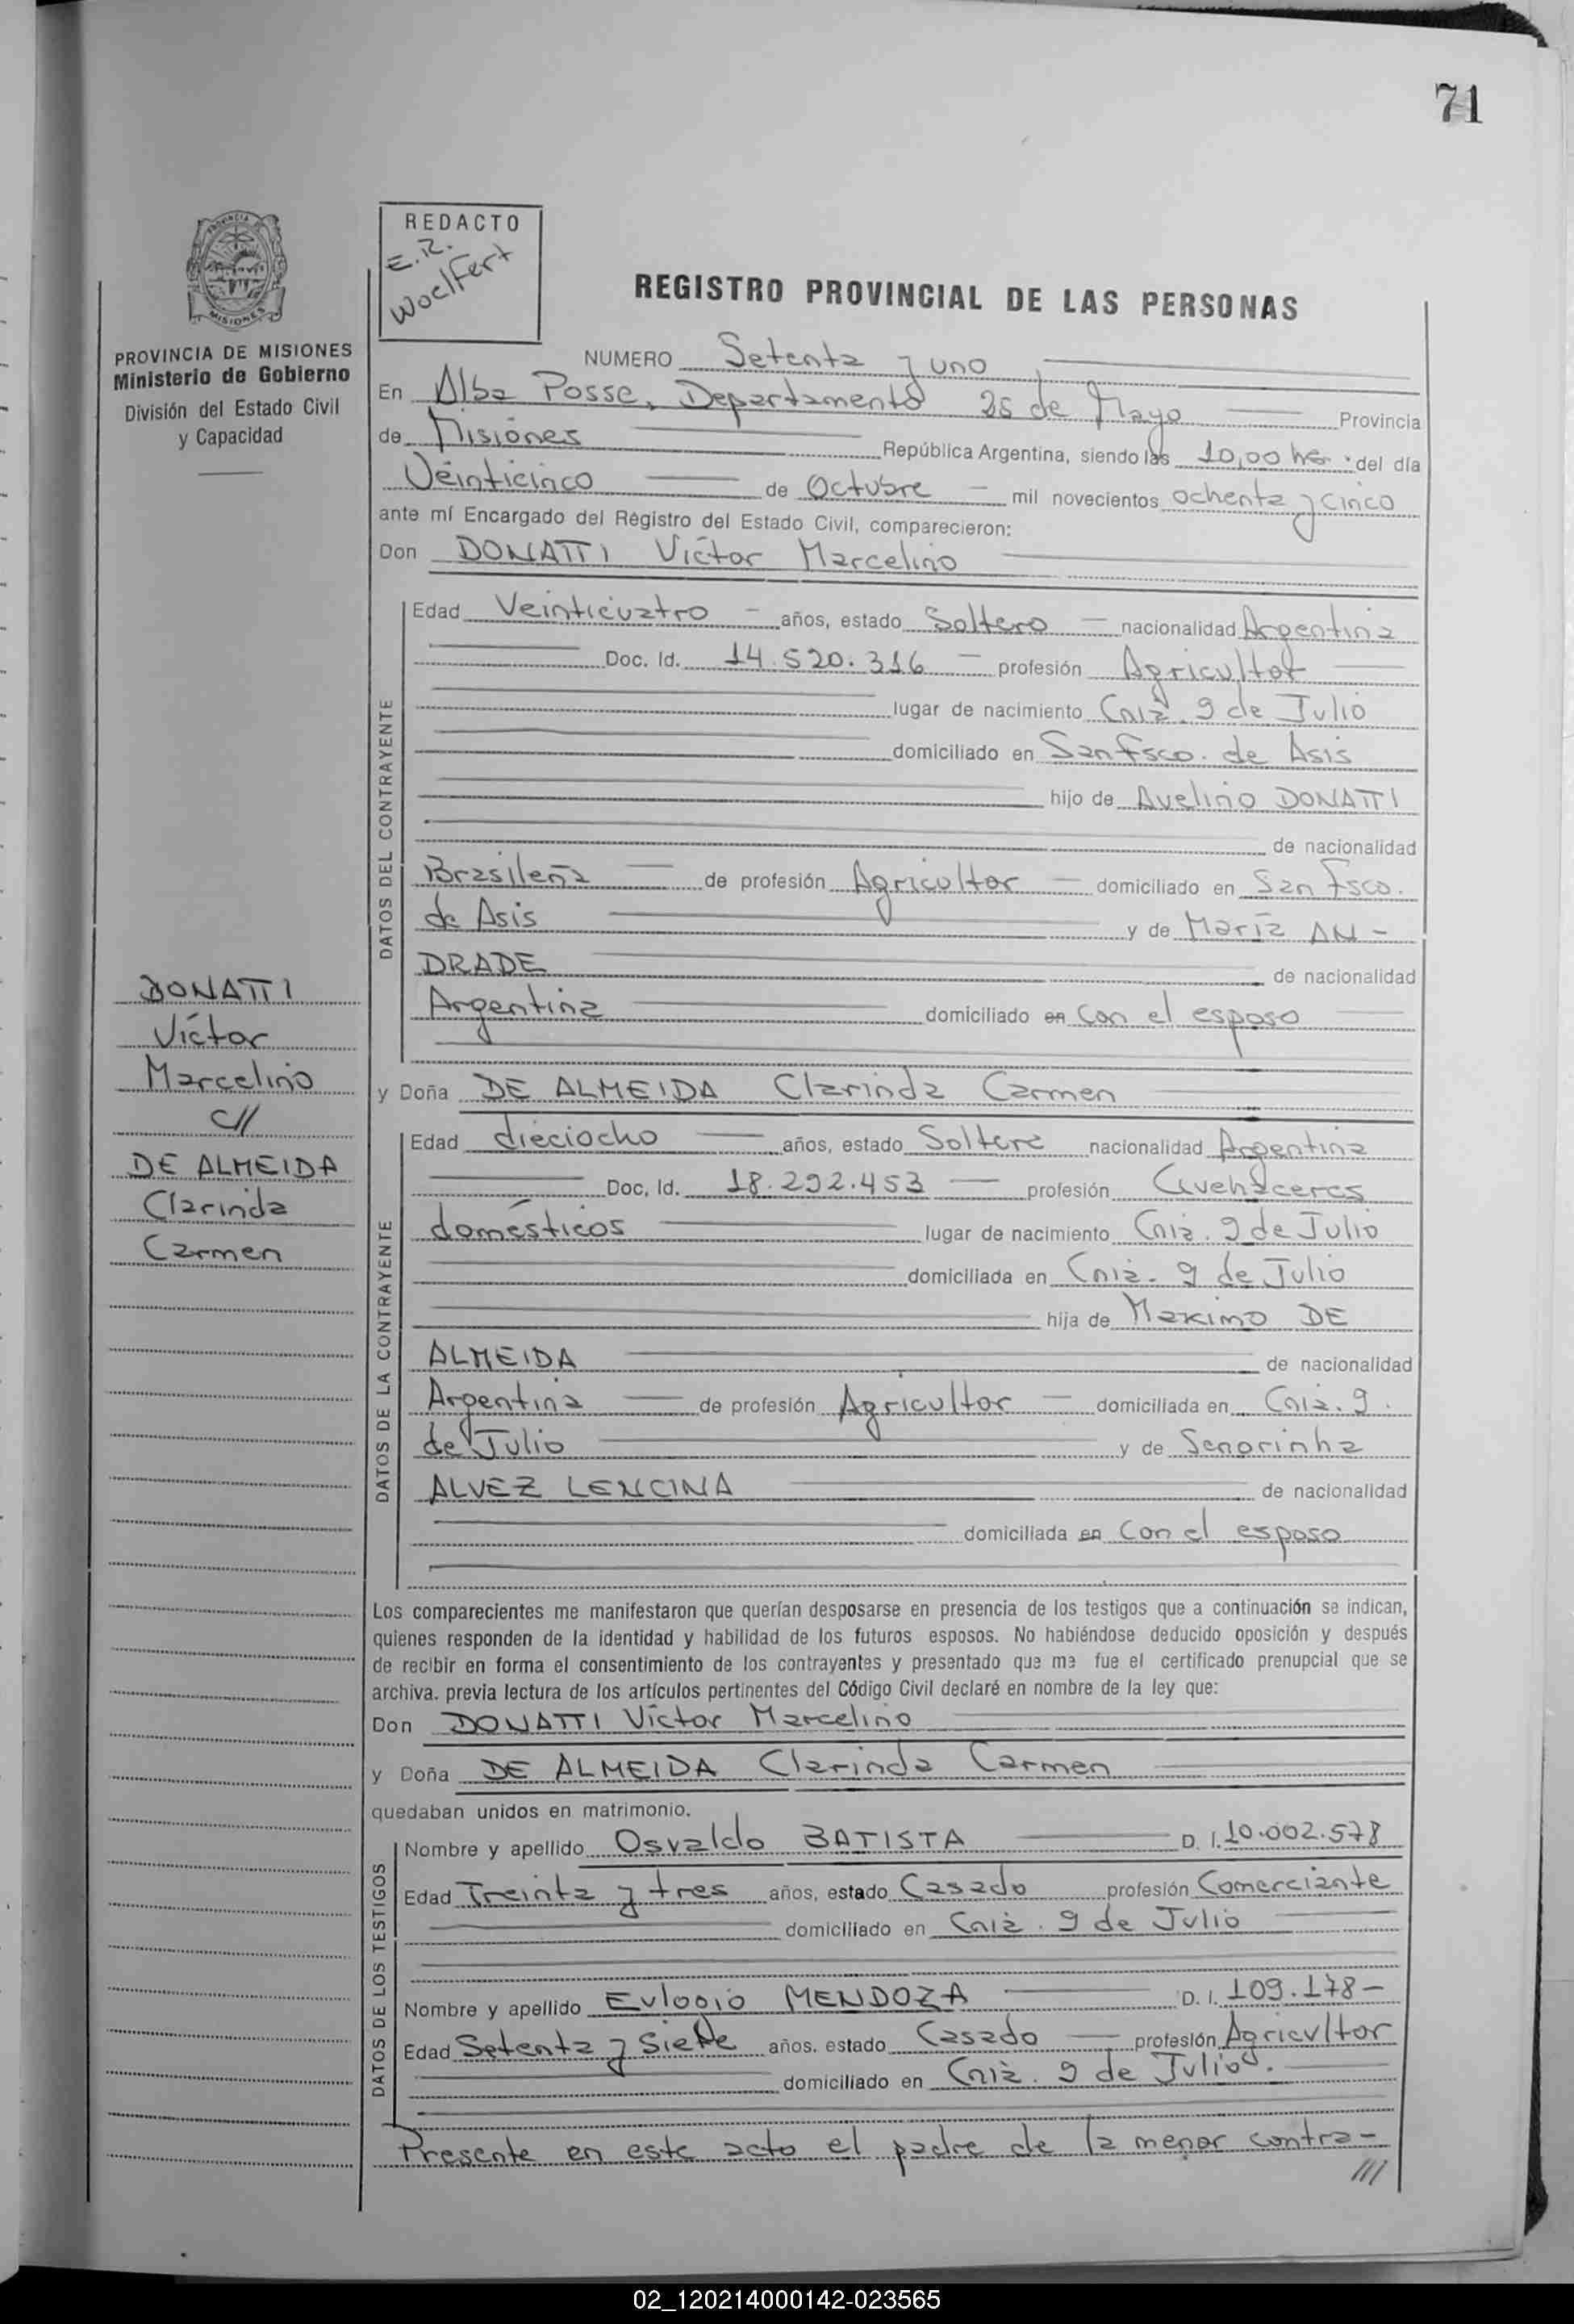 71
REDACTO
E. R.
Woelfert
PROVINCIA
MISIONES
PROVINCIA DE MISIONES
Ministerio de Gobierno
División del Estado Civil
y Capacidad
REGISTRO PROVINCIAL DE LAS PERSONAS
NUMERO Setenta y uno
En Alba Posse, Departamento 25 de Mayo Provincia
de Misiones República Argentina, siendo las 10,00 hs. del día
Veinticinco de Octubre mil novecientos ochenta y cinco
ante mí Encargado del Registro del Estado Civil, comparecieron:
Don DONATTI Víctor Marcelino
DATOS DEL CONTRAYENTE
Edad Veinticuatro años, estado Soltero nacionalidad Argentina
Doc. Id. 14.520.316 profesión Agricultor
lugar de nacimiento Cnia. 9 de Julio
domiciliado en San Fsco. de Asis
hijo de Avelino DONATTI
de nacionalidad
Brasileña de profesión Agricultor domiciliado en San Fsco.
de Asis y de María AN-
DRADE de nacionalidad
Argentina domiciliado en con el esposo
DONATTI
Víctor
Marcelino
c//
DE ALMEIDA
Clarinda
Carmen
y Doña DE ALMEIDA Clarinda Carmen
DATOS DE LA CONTRAYENTE
Edad dieciocho años, estado Soltera nacionalidad Argentina
Doc. Id. 18.292.453 profesión Quehaceres
domésticos lugar de nacimiento Cnia. 9 de Julio
domiciliada en Cnia. 9 de Julio
hija de Maximo DE
ALMEIDA de nacionalidad
Argentina de profesión Agricultor domiciliada en Cnia. 9
de Julio y de Senorinha
ALVEZ LENCINA de nacionalidad
domiciliada en con el esposo
Los comparecientes me manifestaron que querían desposarse en presencia de los testigos que a continuación se indican,
quienes responden de la identidad y habilidad de los futuros esposos. No habiéndose deducido oposición y después
de recibir en forma el consentimiento de los contrayentes y presentado que me fue el certificado prenupcial que se
archiva. previa lectura de los artículos pertinentes del Código Civil declaré en nombre de la ley que:
Don DONATTI Víctor Marcelino
y Doña DE ALMEIDA Clarinda Carmen
quedaban unidos en matrimonio.
DATOS DE LOS TESTIGOS
Nombre y apellido Osvaldo BATISTA D. I. 10.002.578
Edad Treinta y tres años, estado Casado profesión Comerciante
domiciliado en Cnia. 9 de Julio
Nombre y apellido Eulogio MENDOZA D. I. 109.178-
Edad Setenta y Siete años. estado Casado profesión Agricultor
domiciliado en Cnia. 9 de Julio.
Presente en este acto el padre de la menor contra-
///
02_120214000142-023565